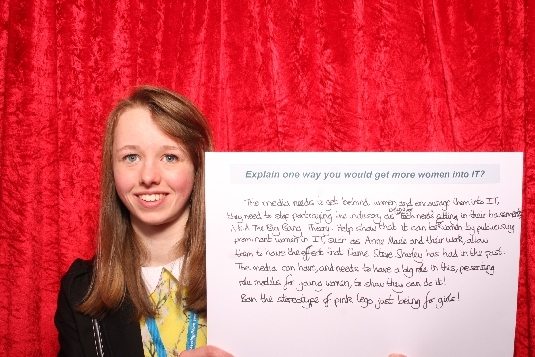 Explain one way you would get more women into IT?
The media needs to get behind women and encourage them into IT,
they need to stop portraying the industry as being tech nerds sitting in their basements
N.E.A The Big Bang Theory. Help show that it can be women by publicising
prominent women in IT, such as Anne Marie and their work, allow
them to have the effect that Dame Steve Shirley has had in the past.
The media can have, and needs to have a big role in this, presenting
role models for young women, to show they can do it!
Ban the stereotype of pink lego just being for girls!